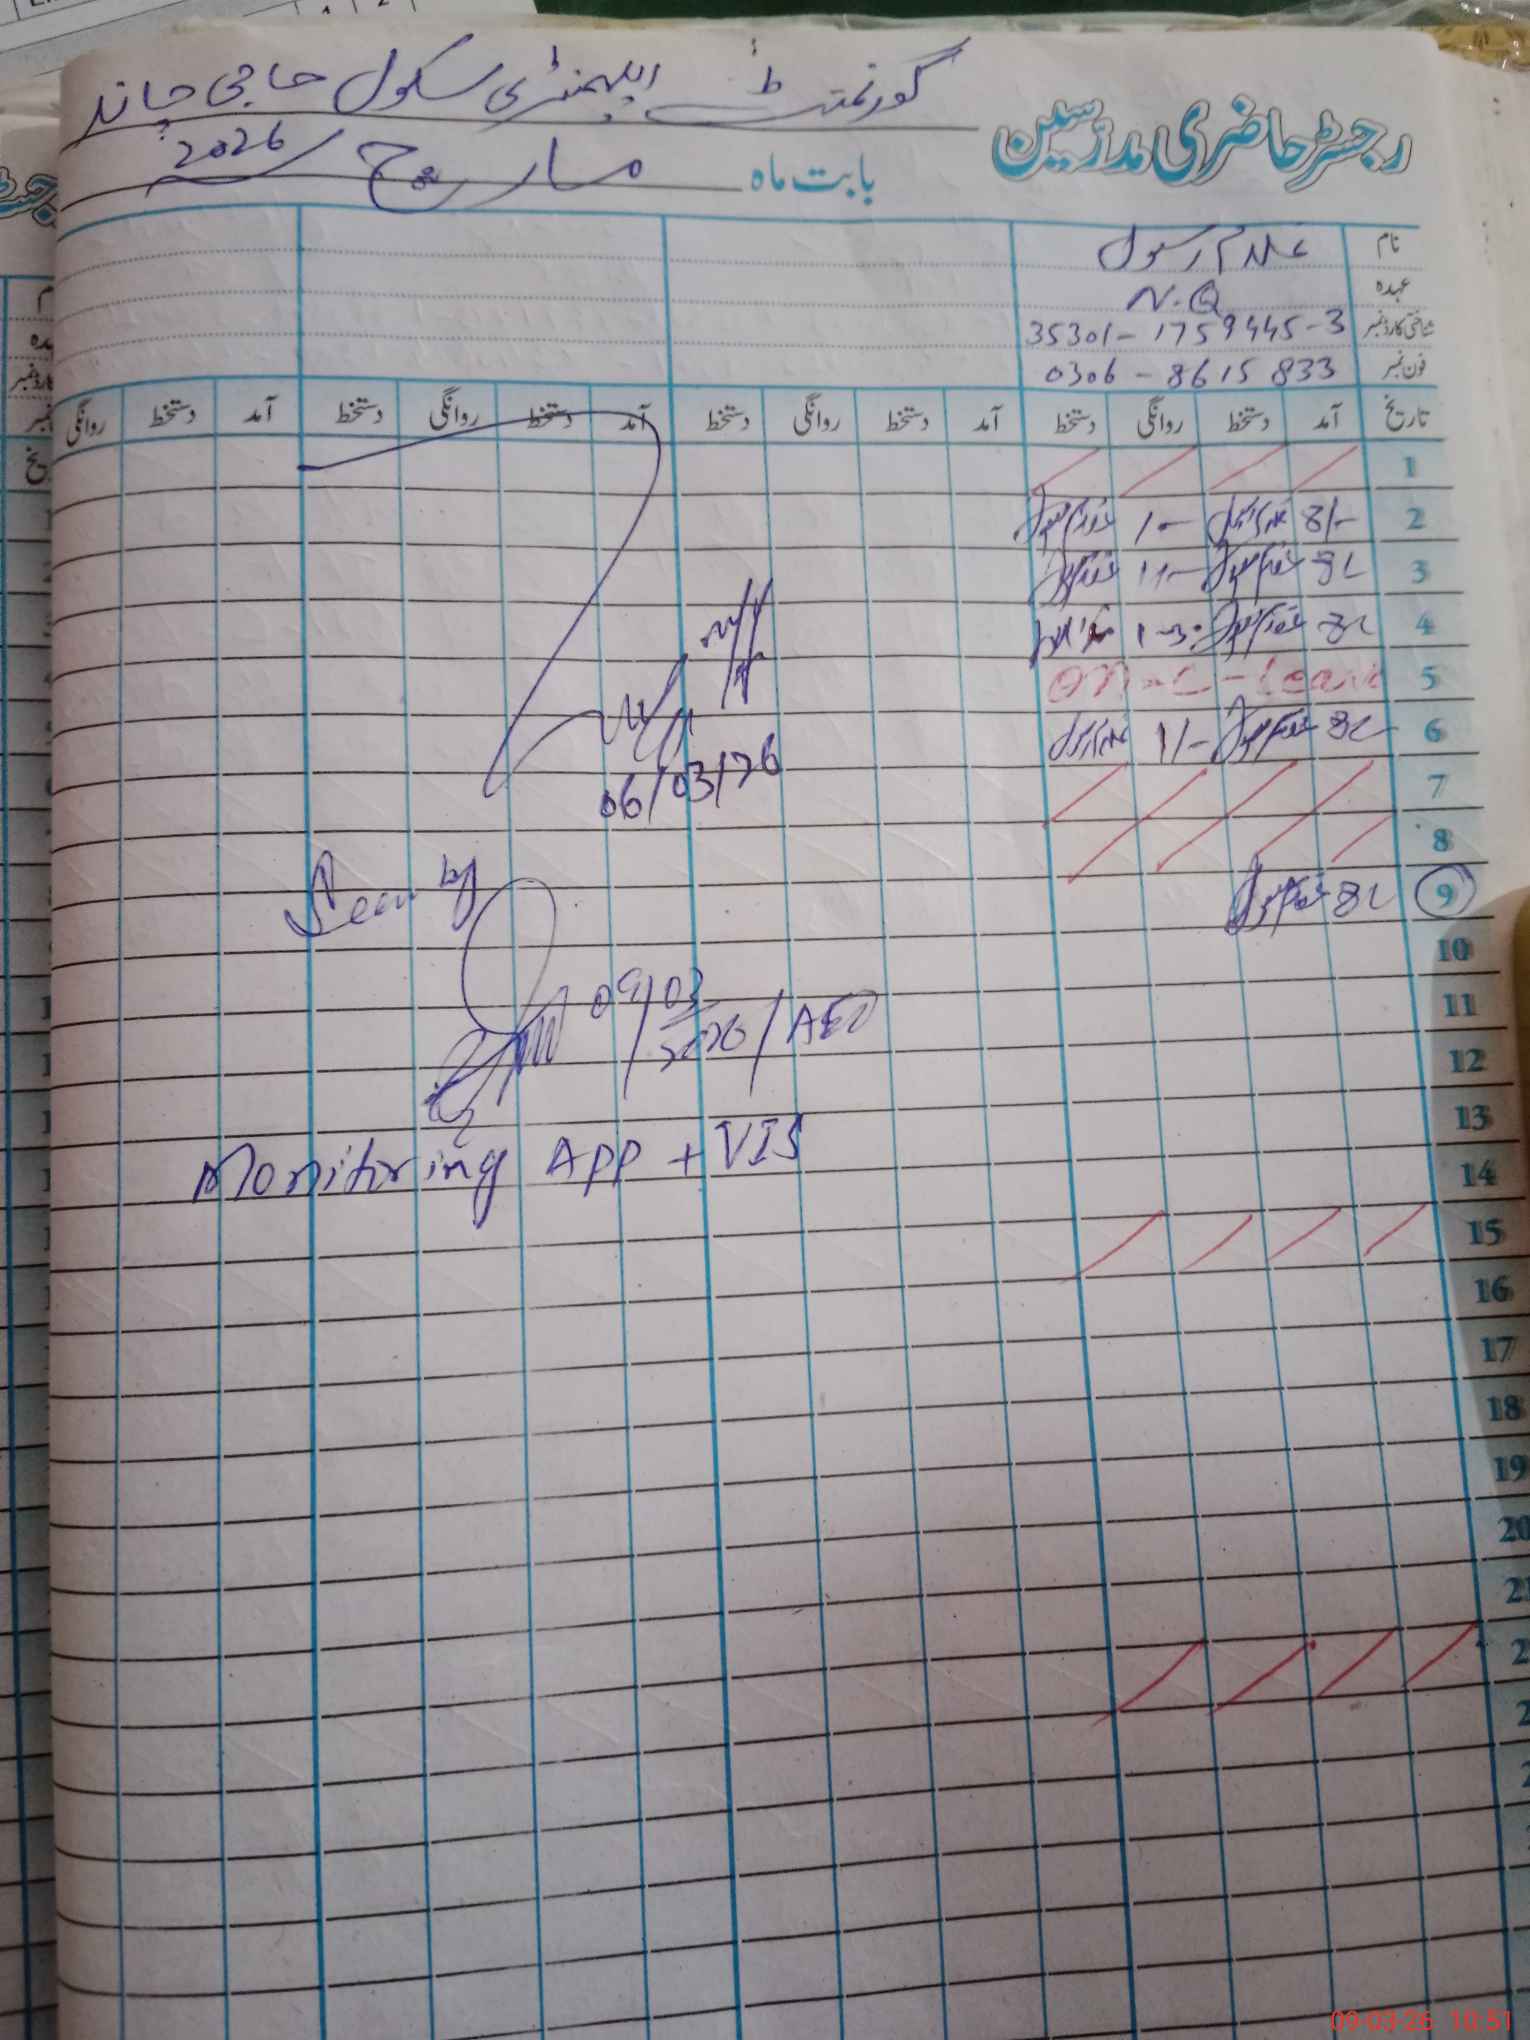 گورنمنٹ ایلیمنٹری سکول حاجی چاند
رجسٹر حاضری مدرسین
بابت ماہ مارچ 2026
نام غلام رسول
عہدہ N.Q
شناختی کارڈ نمبر 35301-1759445-3
فون نمبر 0306-8615833
تاریخ آمد دستخط روانگی دستخط آمد دستخط روانگی دستخط آمد دستخط روانگی دستخط آمد دستخط روانگی
1
2 8/- غلام رسول 1- غلام رسول
3 غلام رسول 11- غلام رسول
4 غلام رسول 1-30
5 On - C - Leave
6 غلام رسول 1/- غلام رسول
7
8
9 غلام رسول
10
11
12
13
14
15
16
17
18
19
20
21
06/03/26
Seen by
09/03/2026/AEO
Monitoring App + VIS
09-03-26 10:51